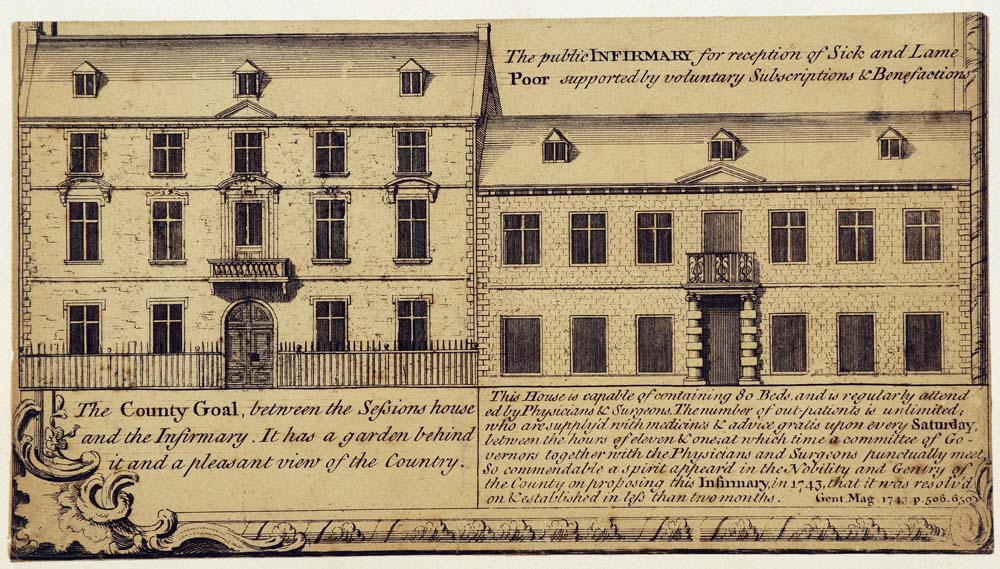 The public INFIRMARY for reception of Sick and Lame
Poor supported by voluntary Subscriptions & Benefactions
The County Goal, between the Seſsions house
and the Infirmary. It has a garden behind
it and a pleasant view of the Country.
This House is capable of containing 80 Beds, and is regularly attend
ed by Physicians & Surgeons. The number of out-patients is unlimited;
who are supply'd with medicines & advice gratis upon every Saturday,
between the hours of eleven & one; at which time a committee of Go-
vernors together with the Physicians and Surgeons punctually meet,
So commendable a spirit appear'd in the Nobility and Gentry of
the County on proposing this Infirmary, in 1743, that it was resolv'd
on & established in leſs than two months. Gent. Mag. 1743 p. 506. 650